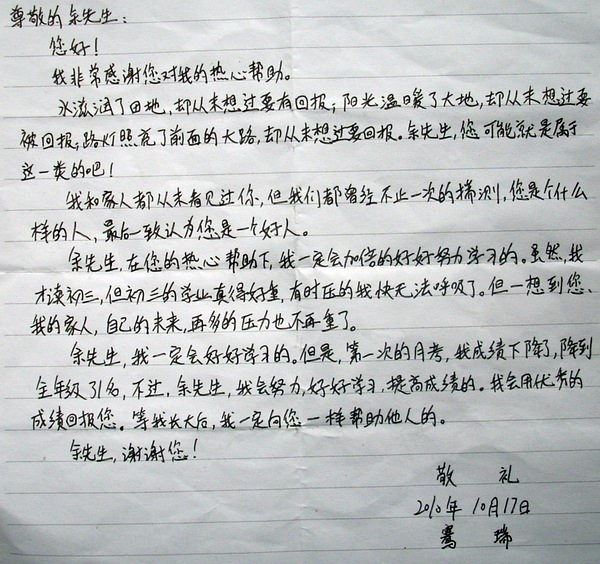 尊敬的余先生：
您好！
我非常感谢您对我的热心帮助。
水滋润了田地，却从未想过要有回报；阳光温暖了大地，却从未想过要
被回报；路灯照亮了前面的大路，却从未想过要回报。余先生，您可能就是属于
这一类的吧！
我和家人都从未看见过你，但我们都曾经不止一次的揣测，您是个什么
样的人，最后一致认为您是一个好人。
余先生，在您的热心帮助下，我一定会加倍的好好努力学习的。虽然，我
才读初三，但初三的学业真得好重，有时压的我快无法呼吸了。但一想到您、
我的家人，自己的未来，再多的压力也不再重了。
余先生，我一定会好好学习的。但是，第一次的月考，我成绩下降了，降到
全年级31名，不过，余先生，我会努力，好好学习，提高成绩的。我会用优秀的
成绩回报您。等我长大后，我一定向您一样帮助他人的。
余先生，谢谢您！
敬 礼
2010年 10月17日
骞 瑞